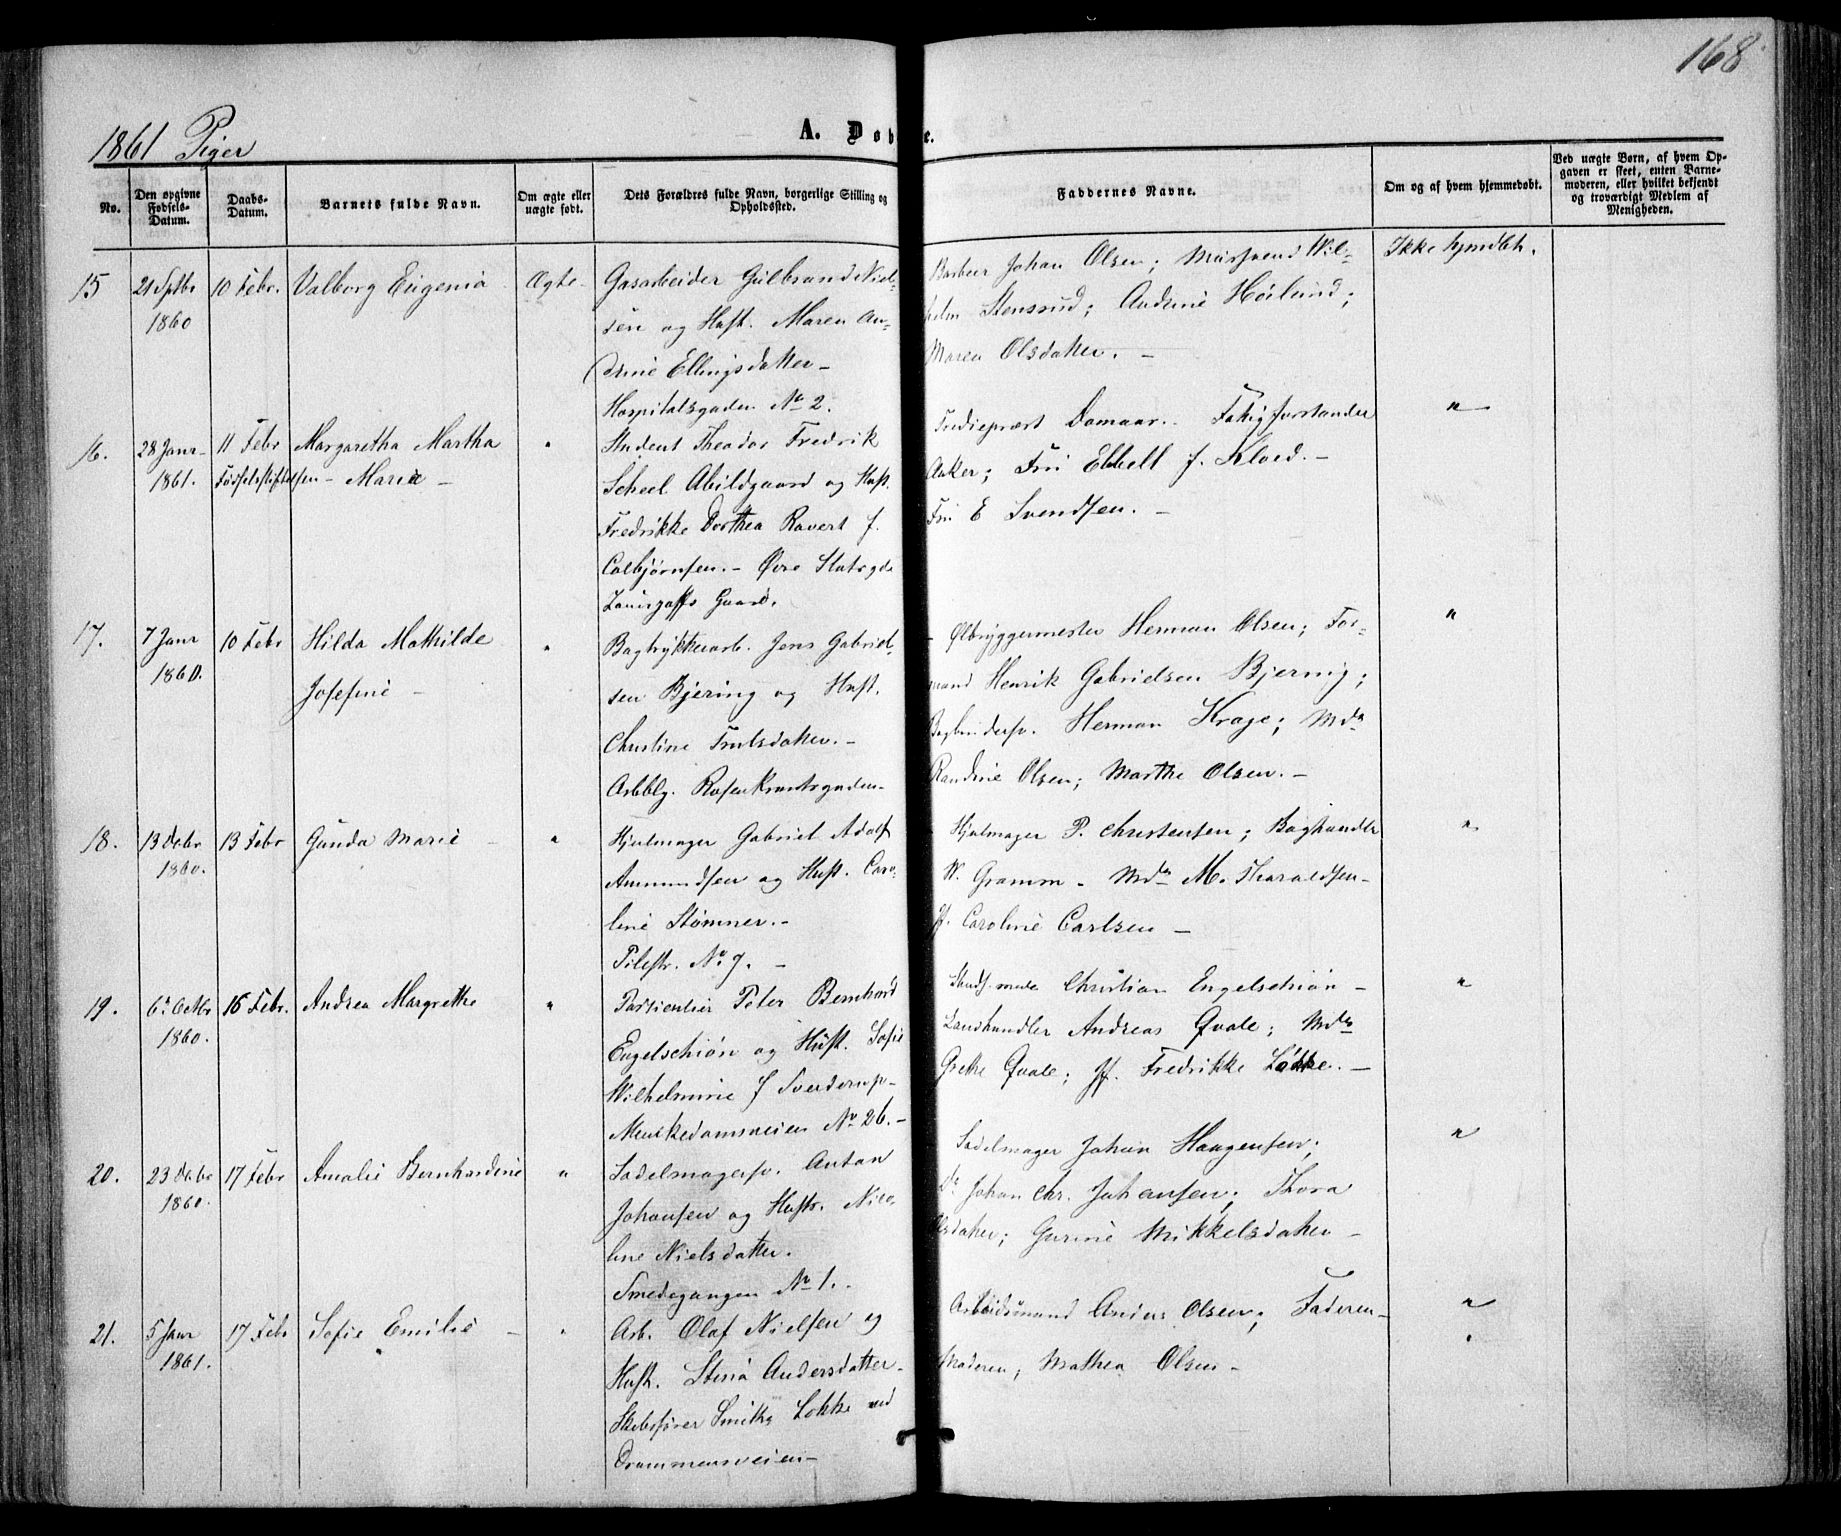 168
1861 Piger
A. Døbte.
No.
Den opgivne Fødsels-Datum.
Daabs-Datum.
Barnets fulde Navn.
Om ægte eller uægte født.
Dets Forældres fulde Navn, borgerlige Stilling og Opholdssted.
Faddernes Navne.
Om og af hvem hjemmedøbt.
Ved uægte Børn, af hvem Opgaven er skeet, enten Barnemoderen, eller hvilket bekjendt og troværdigt Medlem af Menigheden.
15 21 Sptbr 10 Febr. Valborg Eugenia Ægte
1860
Gasarbeider Gulbrand Niel-
sen og Hust. Maren An-
drine Ellingsdatter -
Hospitalsgaden No 2.
Barbeer Johan Olsen; Murswend Wil-
helm Stensrud; Andrine Høilund;
Maren Olsdatter. -
Ikke hjmdbt.
16. 28 Janr 11 Febr Margaretha Martha "
1861. Fødselsstiftelsen - Marie -
Student Theodor Fredrik
Scheel Abildgaard og Hust.
Fredrikke Dorthea Ravert f.
Colbjørnsen. - Øvre Slotsgde
Gaard.
Domaar.
Aaker; Fru Ebbell f. Kloed. -
Fru E Svendsen. -
"
17. 7 Janr 10 Febr Hilda Mathilde "
1860. Josefine -
Bogtrykkerarb. Jens Gabriel-
sen Bjering og Hust.
Christine Trulsdatter. -
Arbblg. Rosenkrantzgaden -
Ølbryggermester Herman Olsen; For-
mand Henrik Gabrielsen Bjering;
Herman Krage; Mda
Randine Olsen; Marthe Olsen. -
"
18. 13 Debr 13 Febr Gunda Marie - "
1860.
Hjulmager Gabriel Adolf
Ammundsen og Hust. Caro-
line Stømner. -
Pilestr. No 7. -
Hjulmager P. Christensen; Boghandler
W. Gramm - Mda M. Tharaldsen -
Jf. Caroline Carlsen -
"
19. 6te Octbr 16 Febr. Andrea Margrethe "
1860.
Particulier Peter Bernhard
Engelschiøn og Hust. Sofie
Wilhelmine f Sverdrup -
Munkedamsveien No 26. -
Christian Engelschiøn -
Landhandler Andreas Qvale; Mda
Grethe Qvale; Jf. Fredrikke Løkke. -
"
20. 23 Debr 17 Febr Amalie Bernhardine "
1860.
Sadelmagersv. Anton
Johansen og Hustr. Nico-
line Nielsdatter.
Smedegangen No 1. -
Sadelmager Johan Haagensen;
Do Johan Chr. Johansen; Thora
Olsdatter; Gurine Mikkelsdatter -
"
21. 5 Janr 17 Febr Sofie Emilie - "
1861.
Arb. Olaf Nielsen og
Hust. Stina Andersdatter -
Skibsfører Smiths Løkke ved
Drammensveien -
Arbeidsmand Anders Olsen; Faderen -
Moderen; Mathea Olsen -
"